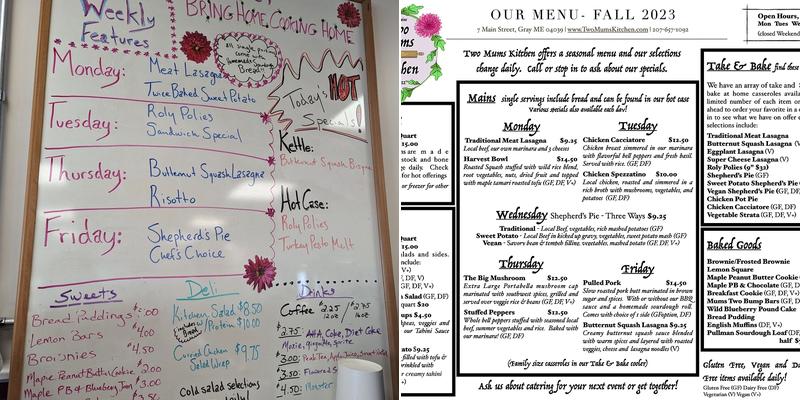 Weekly
Features
BRING HOME COOKING HOME
all single
Homemade
Bread!!
Monday:
Meat Lasagna
Twice Baked Sweet Potato
Tuesday:
Roly Polies
Sandwich Special
Thursday:
Butternut Squash Lasagna
Risotto
Friday:
Shepherd's Pie
Chef's Choice
Today's HOT
Specials!
Kettle:
Butternut Squash Bisque
Hot Case:
Roly Polies
Turkey Pesto Melt
Sweets
Bread Puddings
Lemon Bars 4.00
Brownies $4.50
Maple Peanut Butter Cookie 2.00
Maple PB & Blueberry Jam $3.00
Deli
Kitchen Salad $8.50
Protein $10.00
Includes
Bread
Curried Chicken $9.75
Salad Wrap
Cold salad selections
Drinks
Coffee 2.25 12oz / $2.75 16oz
$2.75: A&W, Coke, Diet Coke
Moxie, ginger ale, sprite
3.00:
3.50:
4.50:
OUR MENU- FALL 2023
7 Main Street, Gray ME 04039 | www.TwoMumsKitchen.com | 207-657-1092
Open Hours,
Mon Tues We
(closed Weekend
Two Mums Kitchen offers a seasonal menu and our selections
change daily. Call or stop in to ask about our specials.
Mains single servings include bread and can be found in our hot case
various specials also available each day!
Monday
Traditional Meat Lasagna $9.25
Local beef, our own marinara and 3 cheeses
Harvest Bowl $14.50
Roasted Squash stuffed with wild rice blend,
root vegetables, nuts, dried fruit and topped
with maple tamari roasted tofu (GF, DF, V+)
Tuesday
Chicken Cacciatore $12.50
Chicken breast simmered in our marinara
with flavorful bell peppers and fresh basil.
Served with rice (GF, DF)
Chicken Spezzatino $10.00
Local chicken, roasted and simmered in a
rich broth with mushrooms, vegetables, and
potatoes (GF, DF)
Wednesday Shepherd's Pie - Three Ways $9.25
Traditional - Local beef, vegetables, rich mashed potatoes (GF)
Sweet Potato - Local Beef in kicked up gravy, vegetables, sweet potato mash (GF)
Vegan - Savory bean & tempeh filling, vegetables, mashed potato (GF, DF, V+)
Thursday
The Big Mushroom $12.50
Extra Large Portabella mushroom cap
marinated with southwest spices, grilled and
served over veggie rice & beans (GF, DF, V+)
Stuffed Peppers $12.50
Whole bell peppers stuffed with seasoned local
beef, summer vegetables and rice. Baked with
our marinara! (GF, DF)
Friday
Pulled Pork $14.50
Slow roasted pork butt marinated in brown
sugar and spices. With or without our BBQ
sauce and a homemade sourdough roll.
Comes with choice of 1 side (GF option, DF)
Butternut Squash Lasagna $9.25
Creamy butternut squash sauce blended
with warm spices and layered with roasted
veggies, cheese and lasagna noodles (V)
(Family size casseroles in our Take & Bake cooler)
Ask us about catering for your next event or get together!
Take & Bake find these
We have an array of take and
bake at home casseroles availa
limited number of each item or
ahead to order your favorite in a
in to see what we have on offer
selections include:
Traditional Meat Lasagna
Butternut Squash Lasagna (V)
Eggplant Lasagna (V)
Super Cheese Lasagna (V)
Roly Polies (9" S13)
Shepherd's Pie (GF)
Sweet Potato Shepherd's Pie
Vegan Shepherd's Pie (GF,
Chicken Pot Pie
Chicken Cacciatore (GF, DF)
Vegetable Strata (GF, DF, V+)
Baked Goods
Brownie/Frosted Brownie
Lemon Square
Maple Peanut Butter Cookie
Maple PB & Chocolate (GF, D
Breakfast Cookie (GF, DF, V+)
Mums Two Bump Bars (GF, D
Wild Blueberry Pound Cake
Bread Pudding
English Muffins (DF, V+)
Pullman Sourdough Loaf (DF,
half $
Gluten Free, Vegan and Da
Free items available daily!
Gluten Free (GF) Dairy Free (DF)
Vegetarian (V) Vegan (V+)